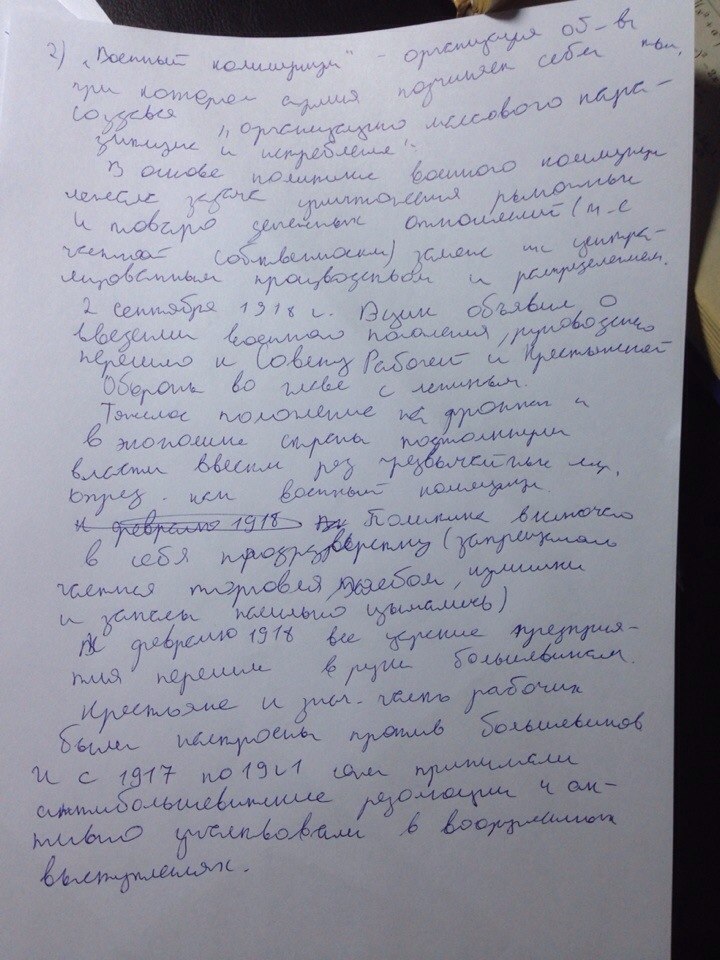 2) „Военный коммунизм" - организация об-ва
при котором армия подчиняет себе тыл,
создавая „организацию массового пара-
зитизма и истребления".
В основе политики военного коммунизма
лежала задача уничтожения рыночных
и товаро денежных отношений (т.е
частной собственности) замена их центра-
лизованным производством и распределением.
2 сентября 1918 г. Вцик объявил о
введении военного положения, руководство
перешло к Совету Рабочей и Крестьянской
Обороны во главе с лениным.
Тяжелое положение на фронтах и
в экономике страны подтолкнули
власти ввести ряд чрезвычайных мер,
опред. как военный коммунизм.
к февралю 1918 Политика включала
в себя продразверстку (запрещалась
частная торговля, хлебом, излишки
и запасы насильно изымались)
К февралю 1918 все царские предприя-
тия перешли в руки большевикам.
Крестьяне и знач. часть рабочих
были настроены против большевиков
и с 1917 по 1921 принимали
антибольшевитские резолюции и ак-
тивно участвовали в вооруженных
выступлениях.